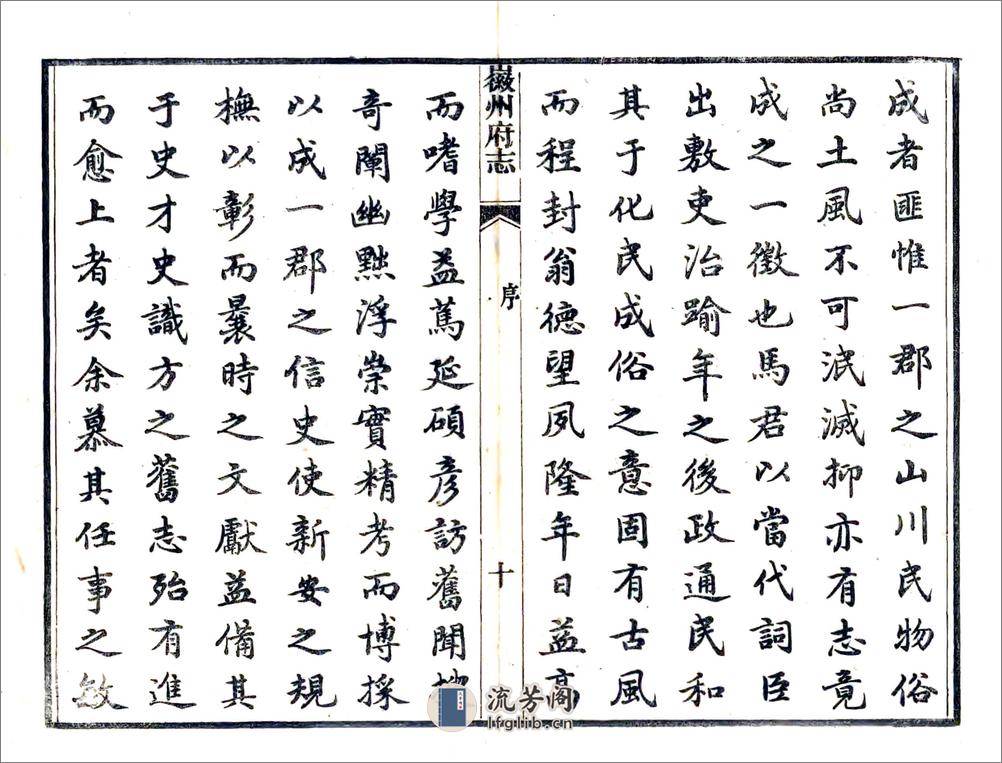 成者匪惟一郡之山川民物俗
尚土風不可泯滅抑亦有志竟
成之一徵也馬君以當代詞臣
出敷吏治踰年之後政通民和
其于化民成俗之意固有古風
而程封翁德望夙隆年日益高
徽州府志
序
十
而嗜學益篤延碩彦訪舊聞搜
奇闡幽黜浮崇實精考而博採
以成一郡之信史使新安之規
橅以彰而曩時之文獻益備其
于史才史識方之舊志殆有進
而愈上者矣余慕其任事之敏
流芳阁
lfglib.cn